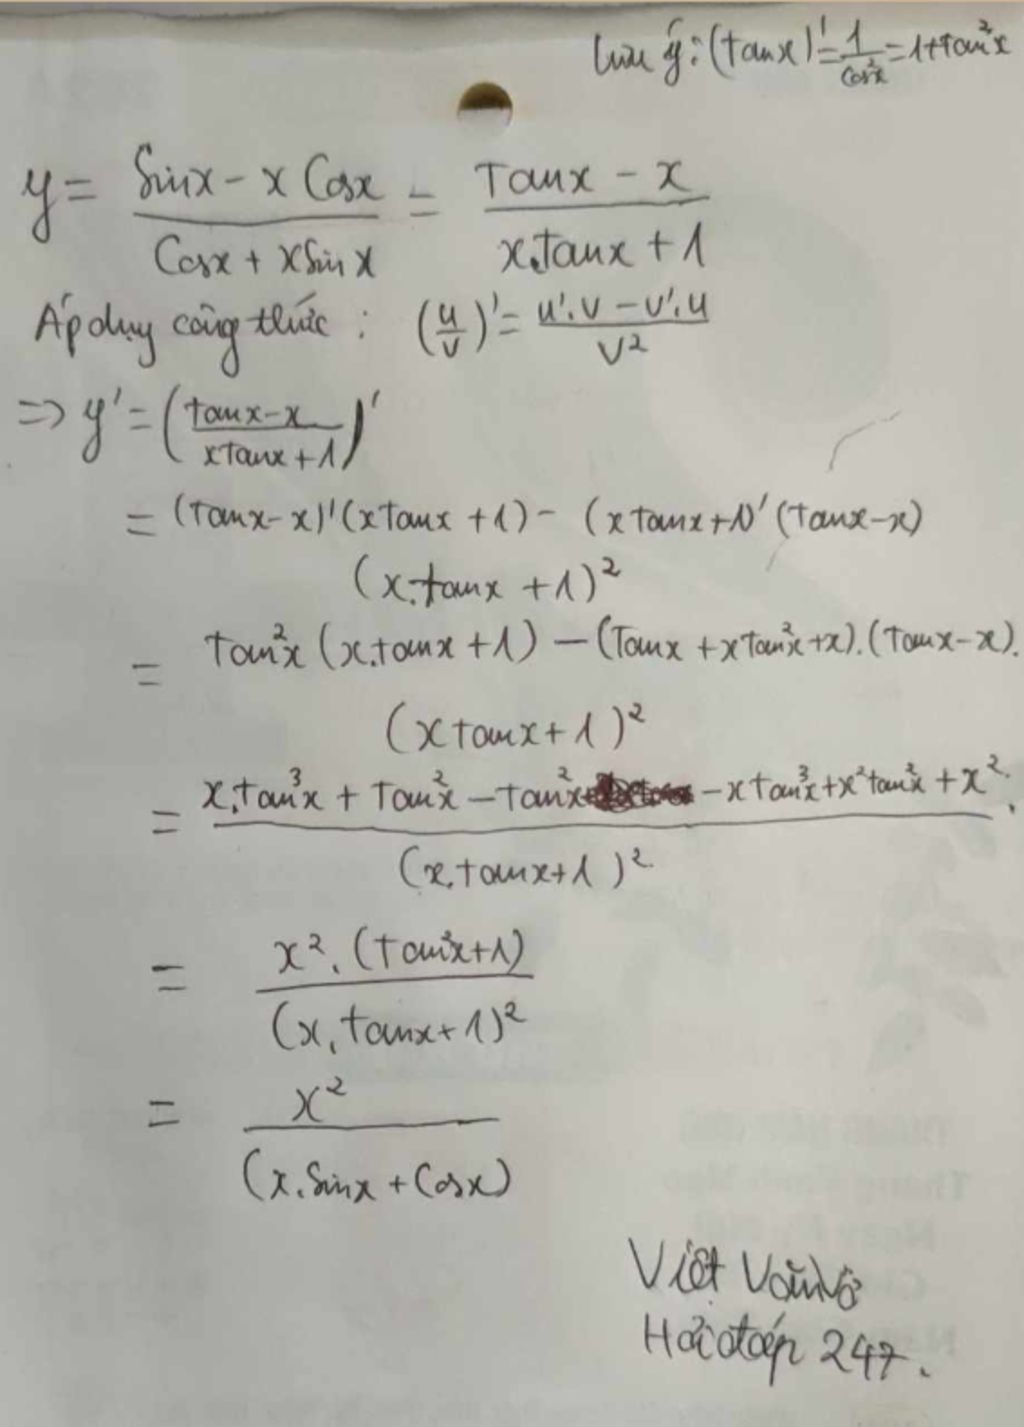 Lưu ý: (tanx)' = 1/cos²x = 1+tan²x
y = (Sinx - x Cosx)/(Cosx + xSinx) = (Tanx - x)/(x.tanx + 1)
Áp dụng công thức : (u/v)' = (u'.v - v'.u)/v²
=> y' = ((tanx-x)/(xtanx+1))'
= (tanx-x)'(xtanx +1) - (xtanx+1)'(tanx-x)
(x.tanx +1)²
= tan²x (x.tanx +1) - (Tanx +xtan²x +x).(tanx-x).
(xtanx+1)²
= x.tan³x + tan²x - tan²x - xtan³x + x²tan²x + x².
(x.tanx+1)²
= x².(tan²x+1)
(x.tanx+1)²
= x²
(x.Sinx + Cosx)
Việt Văn Võ
Hỏi đáp 247.